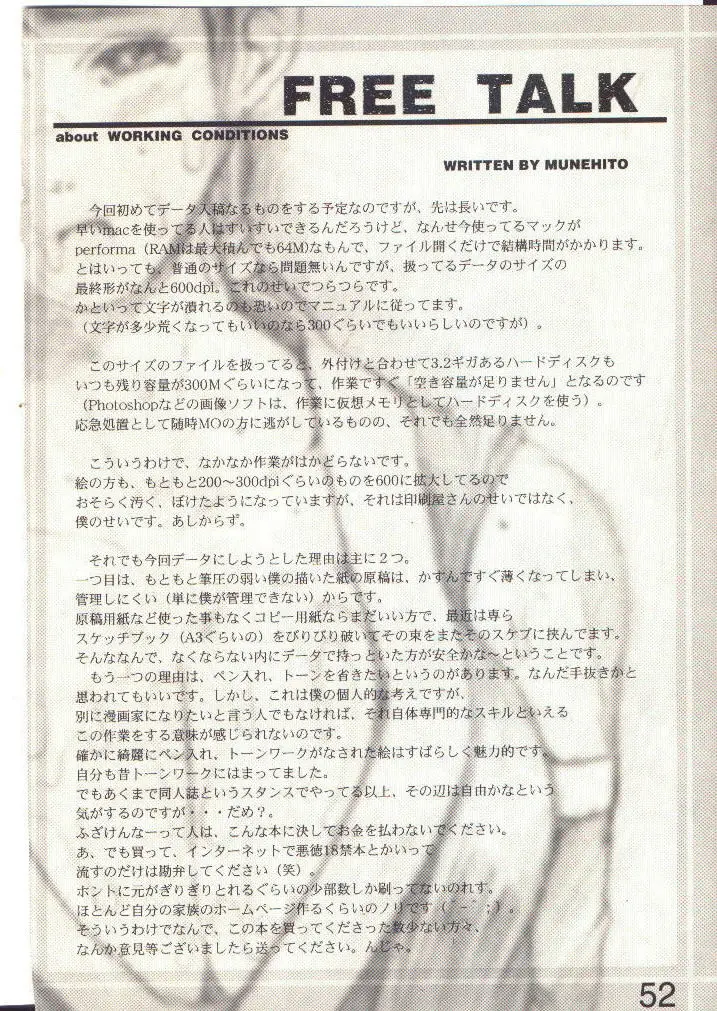 FREE TALK
about WORKING CONDITIONS
WRITTEN BY MUNEHITO
今回初めてデータ入稿なるものをする予定なのですが、先は長いです。
早いmacを使ってる人はすいすいできるんだろうけど、なんせ今使ってるマックが
performa（RAMは最大積んでも64M)なもんで、ファイル開くだけで結構時間がかかります。
とはいっても、普通のサイズなら問題無いんですが、扱ってるデータのサイズの
最終形がなんと600dpi。これのせいでつらつらです。
かといって文字が潰れるのも恐いのでマニュアルに従ってます。
（文字が多少荒くなってもいいのなら300ぐらいでもいいらしいのですが）。
このサイズのファイルを扱ってると、外付けと合わせて3.2ギガあるハードディスクも
いつも残り容量が300Mぐらいになって、作業ですぐ「空き容量が足りません」となるのです
（Photoshopなどの画像ソフトは、作業に仮想メモリとしてハードディスクを使う）。
応急処置として随時MOの方に逃がしているものの、それでも全然足りません。
こういうわけで、なかなか作業がはかどらないです。
絵の方も、もともと200〜300dpiぐらいのものを600に拡大してるので
おそらく汚く、ぼけたようになっていますが、それは印刷屋さんのせいではなく、
僕のせいです。あしからず。
それでも今回データにしようとした理由は主に２つ。
一つ目は、もともと筆圧の弱い僕の描いた紙の原稿は、かすんですぐ薄くなってしまい、
管理しにくい（単に僕が管理できない）からです。
原稿用紙など使った事もなくコピー用紙ならまだいい方で、最近は専ら
スケッチブック（A3ぐらいの）をびりびり破いてその束をまたそのスケブに挟んでます。
そんななんで、なくならない内にデータで持っといた方が安全かな〜ということです。
もう一つの理由は、ペン入れ、トーンを省きたいというのがあります。なんだ手抜きかと
思われてもいいです。しかし、これは僕の個人的な考えですが、
別に漫画家になりたいと言う人でもなければ、それ自体専門的なスキルといえる
この作業をする意味が感じられないのです。
確かに綺麗にペン入れ、トーンワークがなされた絵はすばらしく魅力的です。
自分も昔トーンワークにはまってました。
でもあくまで同人誌というスタンスでやってる以上、その辺は自由かなという
気がするのですが・・・だめ？。
ふざけんなーって人は、こんな本に決してお金を払わないでください。
あ、でも買って、インターネットで悪徳18禁本とかいって
流すのだけは勘弁してください（笑）。
ホントに元がぎりぎりとれるぐらいの少部数しか刷ってないのれす。
ほとんど自分の家族のホームページ作るくらいのノリです（´-｀；）。
そういうわけでなんで、この本を買ってくださった数少ない方々、
なんか意見等ございましたら送ってください。んじゃ。
52